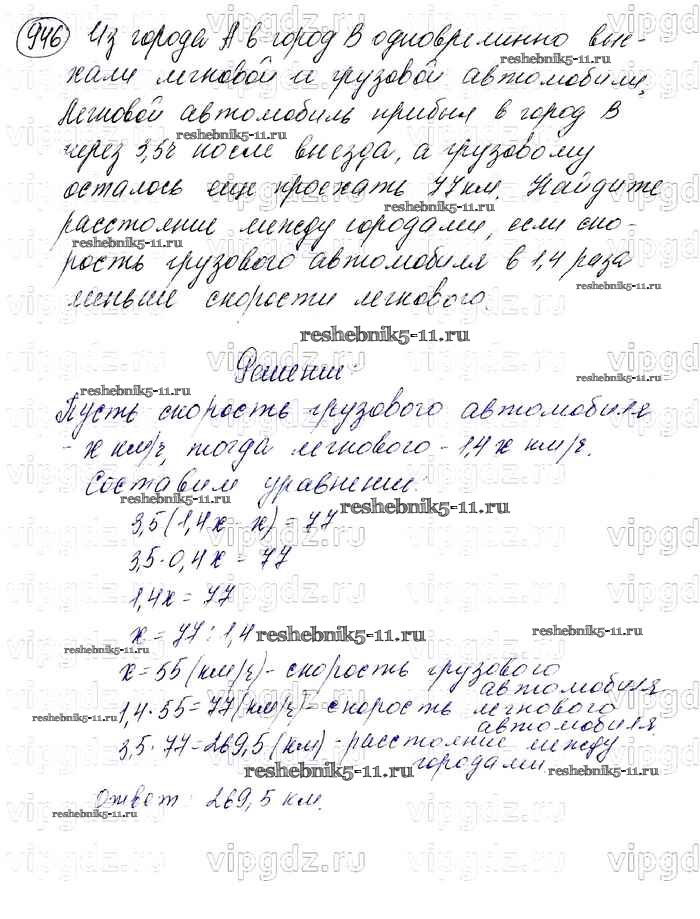 946 Из города А в город В одновременно вые-
хали легковой и грузовой автомобили.
Легковой автомобиль прибыл в город В
через 3,5ч после выезда, а грузовому
осталось еще проехать 77 км. Найдите
расстояние между городами, если ско-
рость грузового автомобиля в 1,4 раза
меньше скорости легкового.
reshebnik5-11.ru
Решение:
Пусть скорость грузового автомобиля
- х км/ч, тогда легкового - 1,4х км/ч.
Составим уравнение:
3,5(1,4х - х) = 77
3,5·0,4х = 77
1,4х = 77
х = 77 : 1,4
х = 55 (км/ч) - скорость грузового
автомобиля
1,4·55 = 77 (км/ч) - скорость легкового
автомобиля
3,5·77 = 269,5 (км) - расстояние между
городами.
Ответ: 269,5 км.
vipgdz.ru